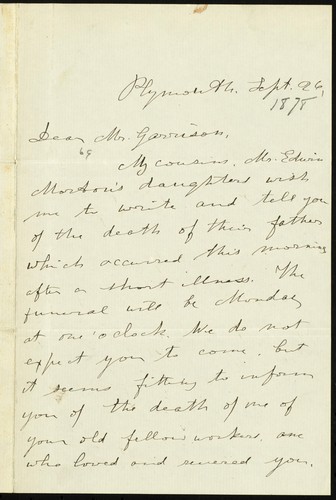 Plymouth, Sept. 26,
1878
Dear Mr. Garrison,
My cousins, Mr. Edwin
Morton's daughters wish
me to write and tell you
of the death of their father
which occurred this morning
after a short illness. The
funeral will be Monday
at one o'clock. We do not
expect you to come, but
it seems fitting to inform
you of the death of one of
your old fellow workers, one
who loved and revered you.